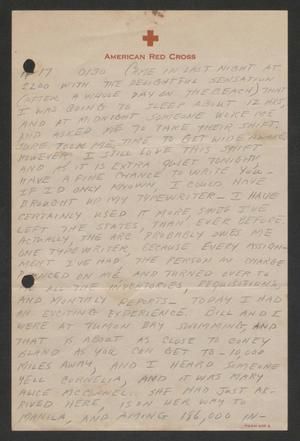 AMERICAN RED CROSS
4-17 0130 CAME IN LAST NIGHT AT
2200 WITH THE DELIGHTFUL SENSATION
(AFTER A WHOLE DAY ON THE BEACH) THAT
I WAS GOING TO SLEEP ABOUT 12 HRS,
AND AT MIDNIGHT SOMEONE WOKE ME
AND ASKED ME TO TAKE THEIR SHIFT.
SURE TOOK ME TIME TO GET WIDE AWAKE.
HOWEVER, I STILL LOVE THIS SHIFT
AND AS IT IS EXTRA QUIET TONIGHT
HAVE A FINE CHANCE TO WRITE YOU—
IF I'D ONLY KNOWN, I COULD HAVE
BROUGHT UP MY TYPEWRITER— I HAVE
CERTAINLY USED IT MORE, SINCE I'VE
LEFT THE STATES, THAN EVER BEFORE
ACTUALLY, THE ARC PROBABLY OWES ME
ONE TYPEWRITER, BECAUSE EVERY ASSIGN-
MENT I'VE HAD, THE PERSON IN CHARGE
POUNCED ON ME AND TURNED OVER TO
ME ALL THE INVENTORIES, REQUISITIONS,
AND MONTHLY REPORTS— TODAY I HAD
AN EXCITING EXPERIENCE. BILL AND I
WERE AT TUMON BAY SWIMMING, AND
THAT IS ABOUT AS CLOSE TO CONEY
ISLAND AS YOU CAN GET TO— 10,000
MILES AWAY, AND I HEARD SOMEONE
YELL CORNELIA, AND IT WAS MARY
ALICE SHE HAD JUST AR-
RIVED HERE, IS ON HER WAY TO
MANILA, AND AMONG 186,000 IN-